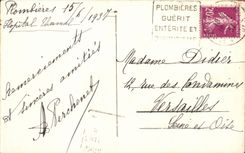 Plombières 15/6/1937
Hôpital Thermal
PLOMBIÈRES
GUÉRIT
ENTÉRITE ET
Remerciements
et sincères amitiés
A. Perchenet
Madame Didier
12, rue des Condamines
Versailles
Seine et Oise